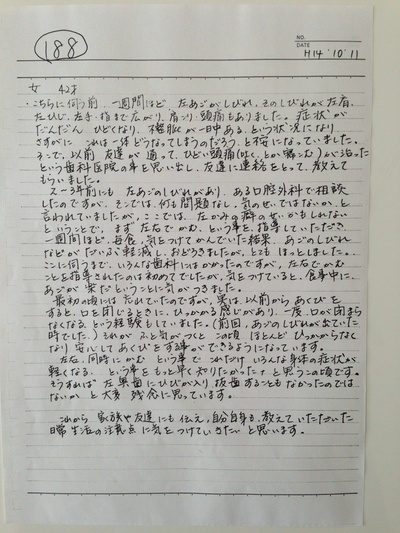 188
NO.
DATE H14・10・11
女 42才
・こちらに伺う前、一週間ほど、左あごがしびれ、そのしびれが左肩、
左ひじ、左手、指まで広がり、肩こり、頭痛もありました。症状が
だんだん ひどくなり、不整脈が一日中ある、という状況になり
さすがに これは一体どうなってしまうのだろう、と不安になっていました。
そこで、以前 友達が 通って、ひどい頭痛(吐くとか痛む)が治った
という歯科医院の事を思い出し、友達に連絡をとって、教えて
もらいました。
2〜3年前にも 左あごのしびれがあり、ある口腔外科で相談
したのですが、そこでは、何も問題なし、気のせいではないか、と
言われていましたが、ここでは、左がみの癖のせいかもしれない
ということで、まず 左右でかむ、という事を、指導していただき
一週間ほど、毎食、気をつけてかんでいた結果、あごのしびれ
などがだいぶ軽減し、おどろきましたが、とても ほっとしました。
ここに伺うまで、いろんな歯科にはかかったのですが、左右でかむ
ことを指導されたのは初めてでしたが、気をつけていると、食事中に、
あごが 楽だということに気がつきました。
最初の頃には 忘れていたのですが、実は、以前からあくびを
すると、口を閉じるときに、ひっかかる感じがあり、一度、口が閉まら
なくなる、という経験もしていました。(前回、あごのしびれが出ていた
時でした。) それが ふと気がつくと この頃 ほとんど ひっかからなく
なり 安心してあくびをする事ができるようになっています。
左右、同時にかむ という事で これだけ いろんな身体の症状が
軽くなる、という事を もっと早く知りたかったナ と思うこの頃です。
そうすれば 左奥歯にひびが入り 抜歯することもなかったのでは
ないか と大変 残念に思っています。
これから 家族や友達にも伝え、自分自身も、教えていただいた
日常生活の注意点に気をつけていきたい と思います。